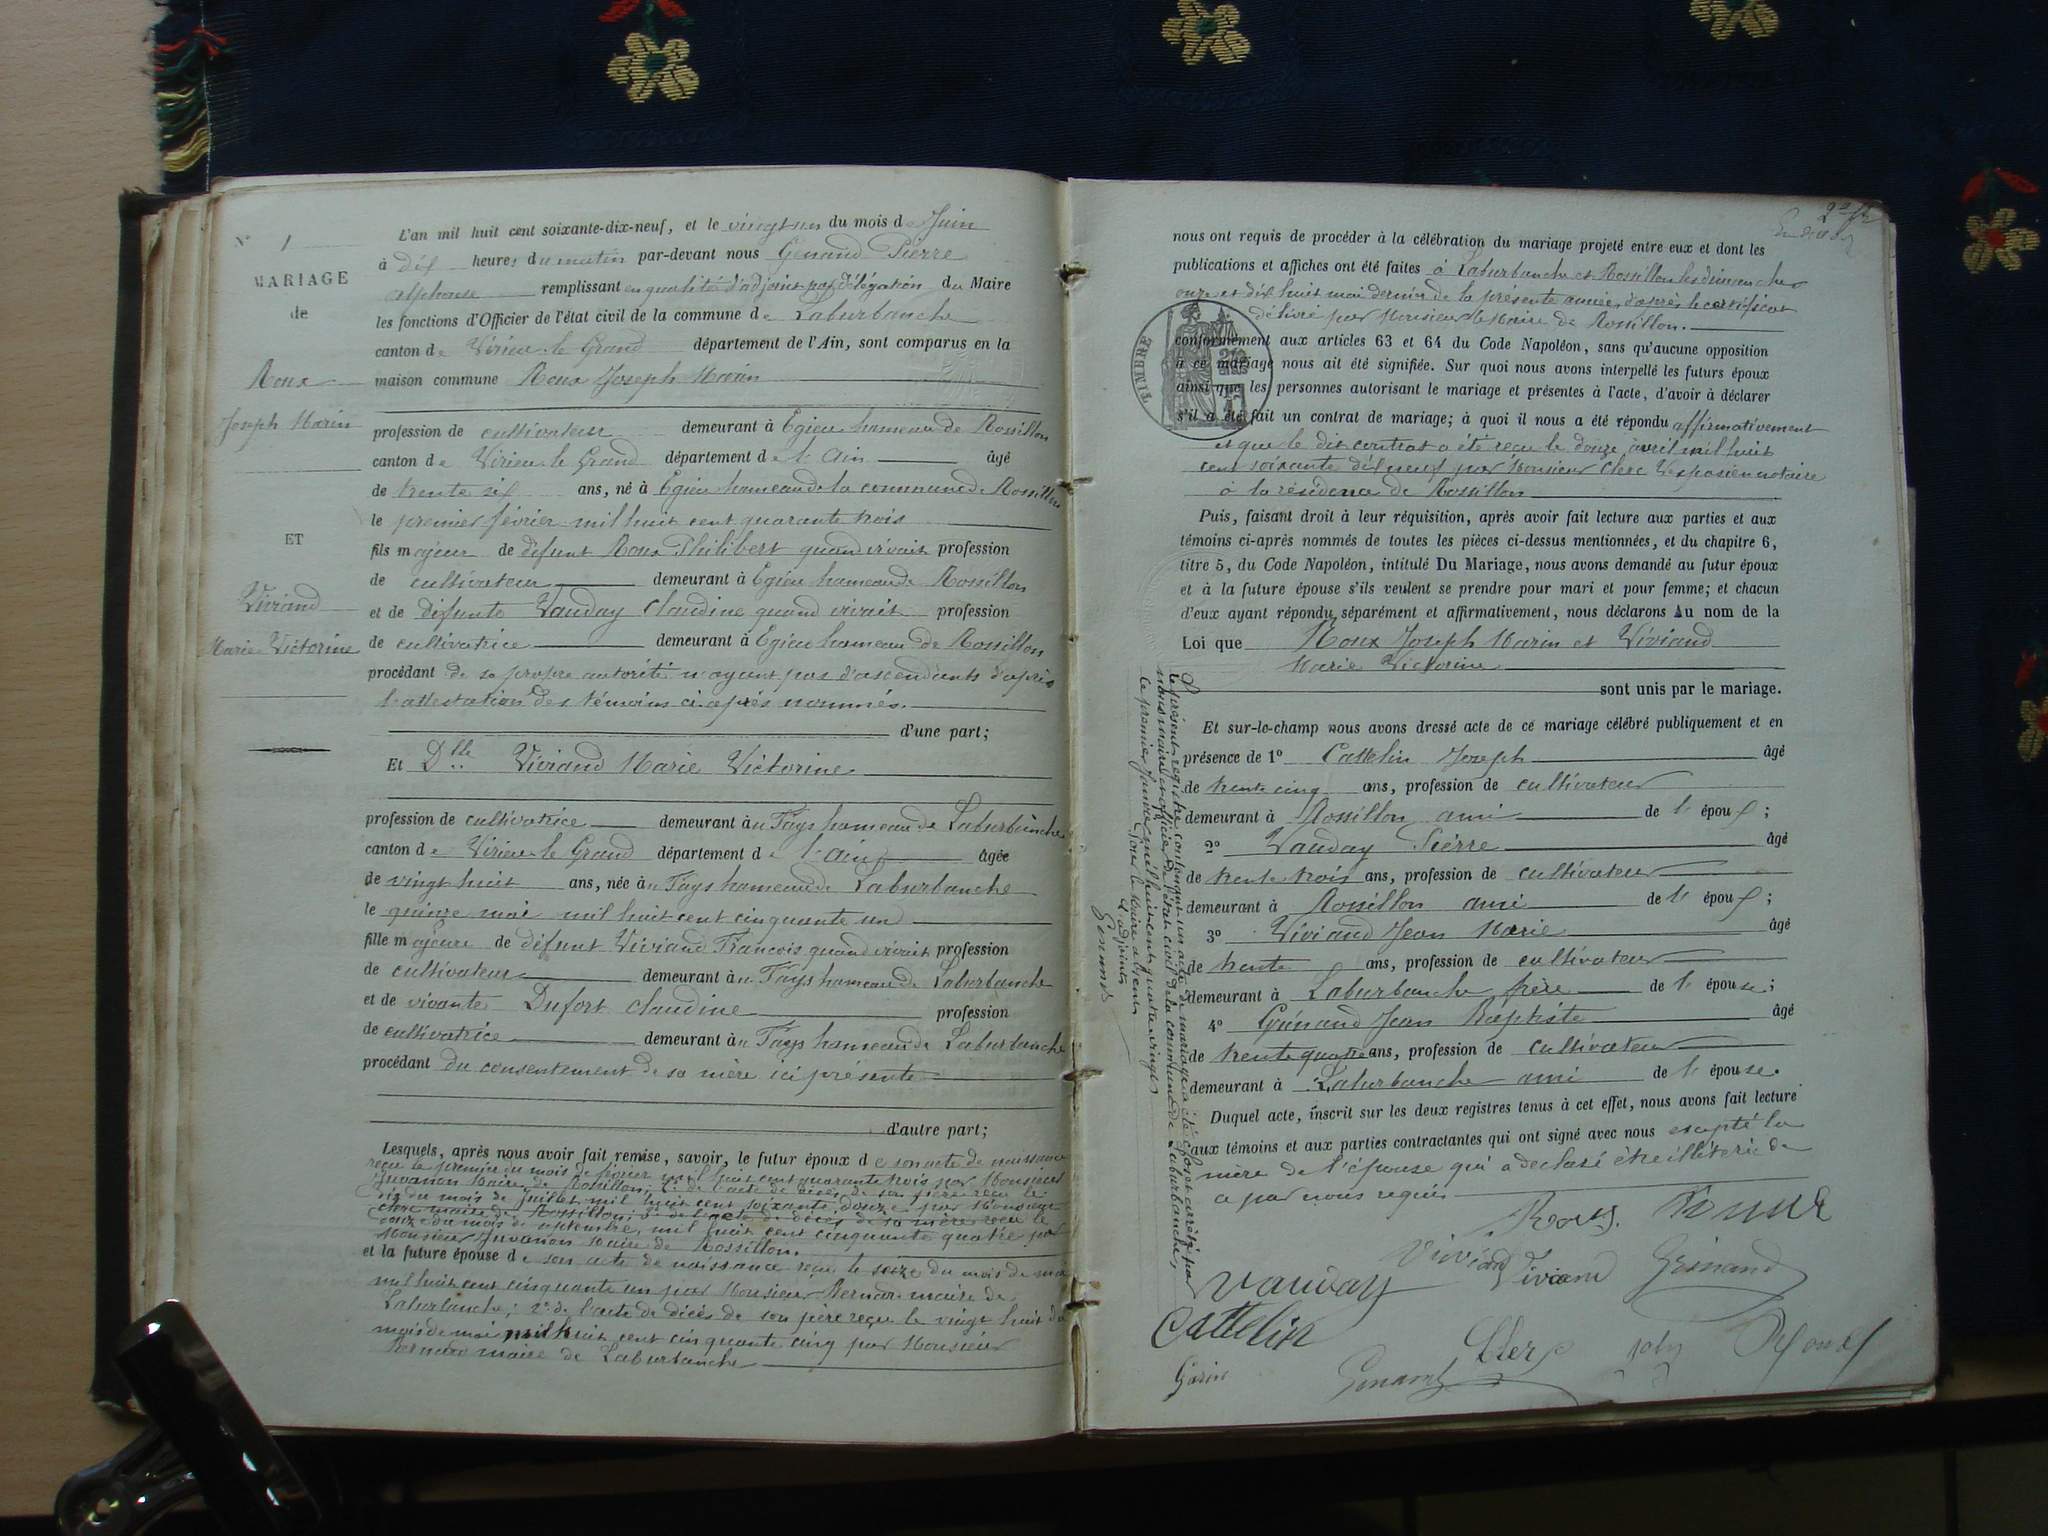 N° 1
MARIAGE
de
Roux
Joseph Marin
ET
Viviand
Marie Victorine
L'an mil huit cent soixante-dix-neuf, et le vingt un du mois de Juin
à dix heures du matin par-devant nous Genand Pierre
alphonse remplissant en qualité d'adjoint par délégation du Maire
les fonctions d'Officier de l'état civil de la commune de Laburbanche
canton de Virieu le Grand département de l'Ain, sont comparus en la
maison commune Roux Joseph Marin
profession de cultivateur demeurant à Egieu hameau de Rossillon
canton de Virieu le Grand département de l'Ain âgé
de trente six ans, né à Egieu hameau de la commune de Rossillon
le premier février mil huit cent quarante trois
fils majeur de défunt Roux Philibert quand vivait profession
de cultivateur demeurant à Egieu hameau de Rossillon
et de défunte Vauday Claudine quand vivait profession
de cultivatrice demeurant à Egieu hameau de Rossillon
procédant de sa propre autorité n'ayant pas d'ascendants d'après
l'attestation des témoins ci-après nommés.
d'une part;
Et Dlle Viviand Marie Victorine
profession de cultivatrice demeurant à Fays hameau de Laburbanche
canton de Virieu le Grand département de l'ain âgée
de vingt huit ans, née à Fays hameau de Laburbanche
le quinze mai mil huit cent cinquante un
fille majeure de défunt Viviand François quand vivait profession
de cultivateur demeurant à Fays hameau de Laburbanche
et de vivante Dufort claudine profession
de cultivatrice demeurant à Fays hameau de Laburbanche
procédant du consentement de sa mère ici présente
d'autre part;
Lesquels, après nous avoir fait remise, savoir, le futur époux de son acte de naissance
reçu le premier du mois de février mil huit cent quarante trois par Monsieur
Juvanon Maire de Rossillon; 2° de l'acte de décès de son père reçu le
dix du mois de juillet mil huit cent soixante douze par Monsieur
clerc maire de Rossillon; 3° de l'acte de décès de sa mère reçu le
onze du mois de septembre mil huit cent cinquante quatre par
Monsieur Juvanon Maire de Rossillon.
et la future épouse de son acte de naissance reçu le seize du mois de mai
mil huit cent cinquante un par Monsieur Bernard maire de
Laburbanche; 2° de l'acte de décès de son père reçu le vingt huit du
mois de mai mil huit cent cinquante cinq par Monsieur
Bernard maire de Laburbanche
nous ont requis de procéder à la célébration du mariage projeté entre eux et dont les
publications et affiches ont été faites à Laburbanche et Rossillon les dimanches
onze et dix huit mai dernier de la présente année, d'après le certificat
délivré par Monsieur le Maire de Rossillon.
TIMBRE
conformément aux articles 63 et 64 du Code Napoléon, sans qu'aucune opposition
à ce mariage nous ait été signifiée. Sur quoi nous avons interpellé les futurs époux
ainsi que les personnes autorisant le mariage et présentes à l'acte, d'avoir à déclarer
s'il a été fait un contrat de mariage; à quoi il nous a été répondu affirmativement
et que le dit contrat a été reçu le douze avril mil huit
cent soixante dix neuf par Monsieur Clerc Vespasien notaire
à la résidence de Rossillon
Puis, faisant droit à leur réquisition, après avoir fait lecture aux parties et aux
témoins ci-après nommés de toutes les pièces ci-dessus mentionnées, et du chapitre 6,
titre 5, du Code Napoléon, intitulé Du Mariage, nous avons demandé au futur époux
et à la future épouse s'ils veulent se prendre pour mari et pour femme; et chacun
d'eux ayant répondu séparément et affirmativement, nous déclarons Au nom de la
Loi que Roux Joseph Marin et Viviand
Marie Victorine
sont unis par le mariage.
Et sur-le-champ nous avons dressé acte de ce mariage célébré publiquement et en
présence de 1° Cattelin Joseph âgé
de trente cinq ans, profession de cultivateur
demeurant à Rossillon ami de l'époux;
2° Vauday Pierre âgé
de trente trois ans, profession de cultivateur
demeurant à Rossillon ami de l'époux;
3° Viviand Jean Marie âgé
de trente ans, profession de cultivateur
demeurant à Laburbanche frère de l'épouse;
4° Génand Jean Baptiste âgé
de trente quatre ans, profession de cultivateur
demeurant à Laburbanche ami de l'épouse.
Duquel acte, inscrit sur les deux registres tenus à cet effet, nous avons fait lecture
aux témoins et aux parties contractantes qui ont signé avec nous excepté la
mère de l'épouse qui a déclaré être illétérée de
ce par nous requis
Roux
Viviand Viviand Génand
Vauday
Cattelin
Clerc
Garin Genand
Le présent registre contenant un acte de mariage a été clos et arrêté par
nous maire officier de l'état civil de la commune de Laburbanche,
ce premier Janvier mil huit cent quatre vingt
Pour le Maire absent
L'adjoint
Genand